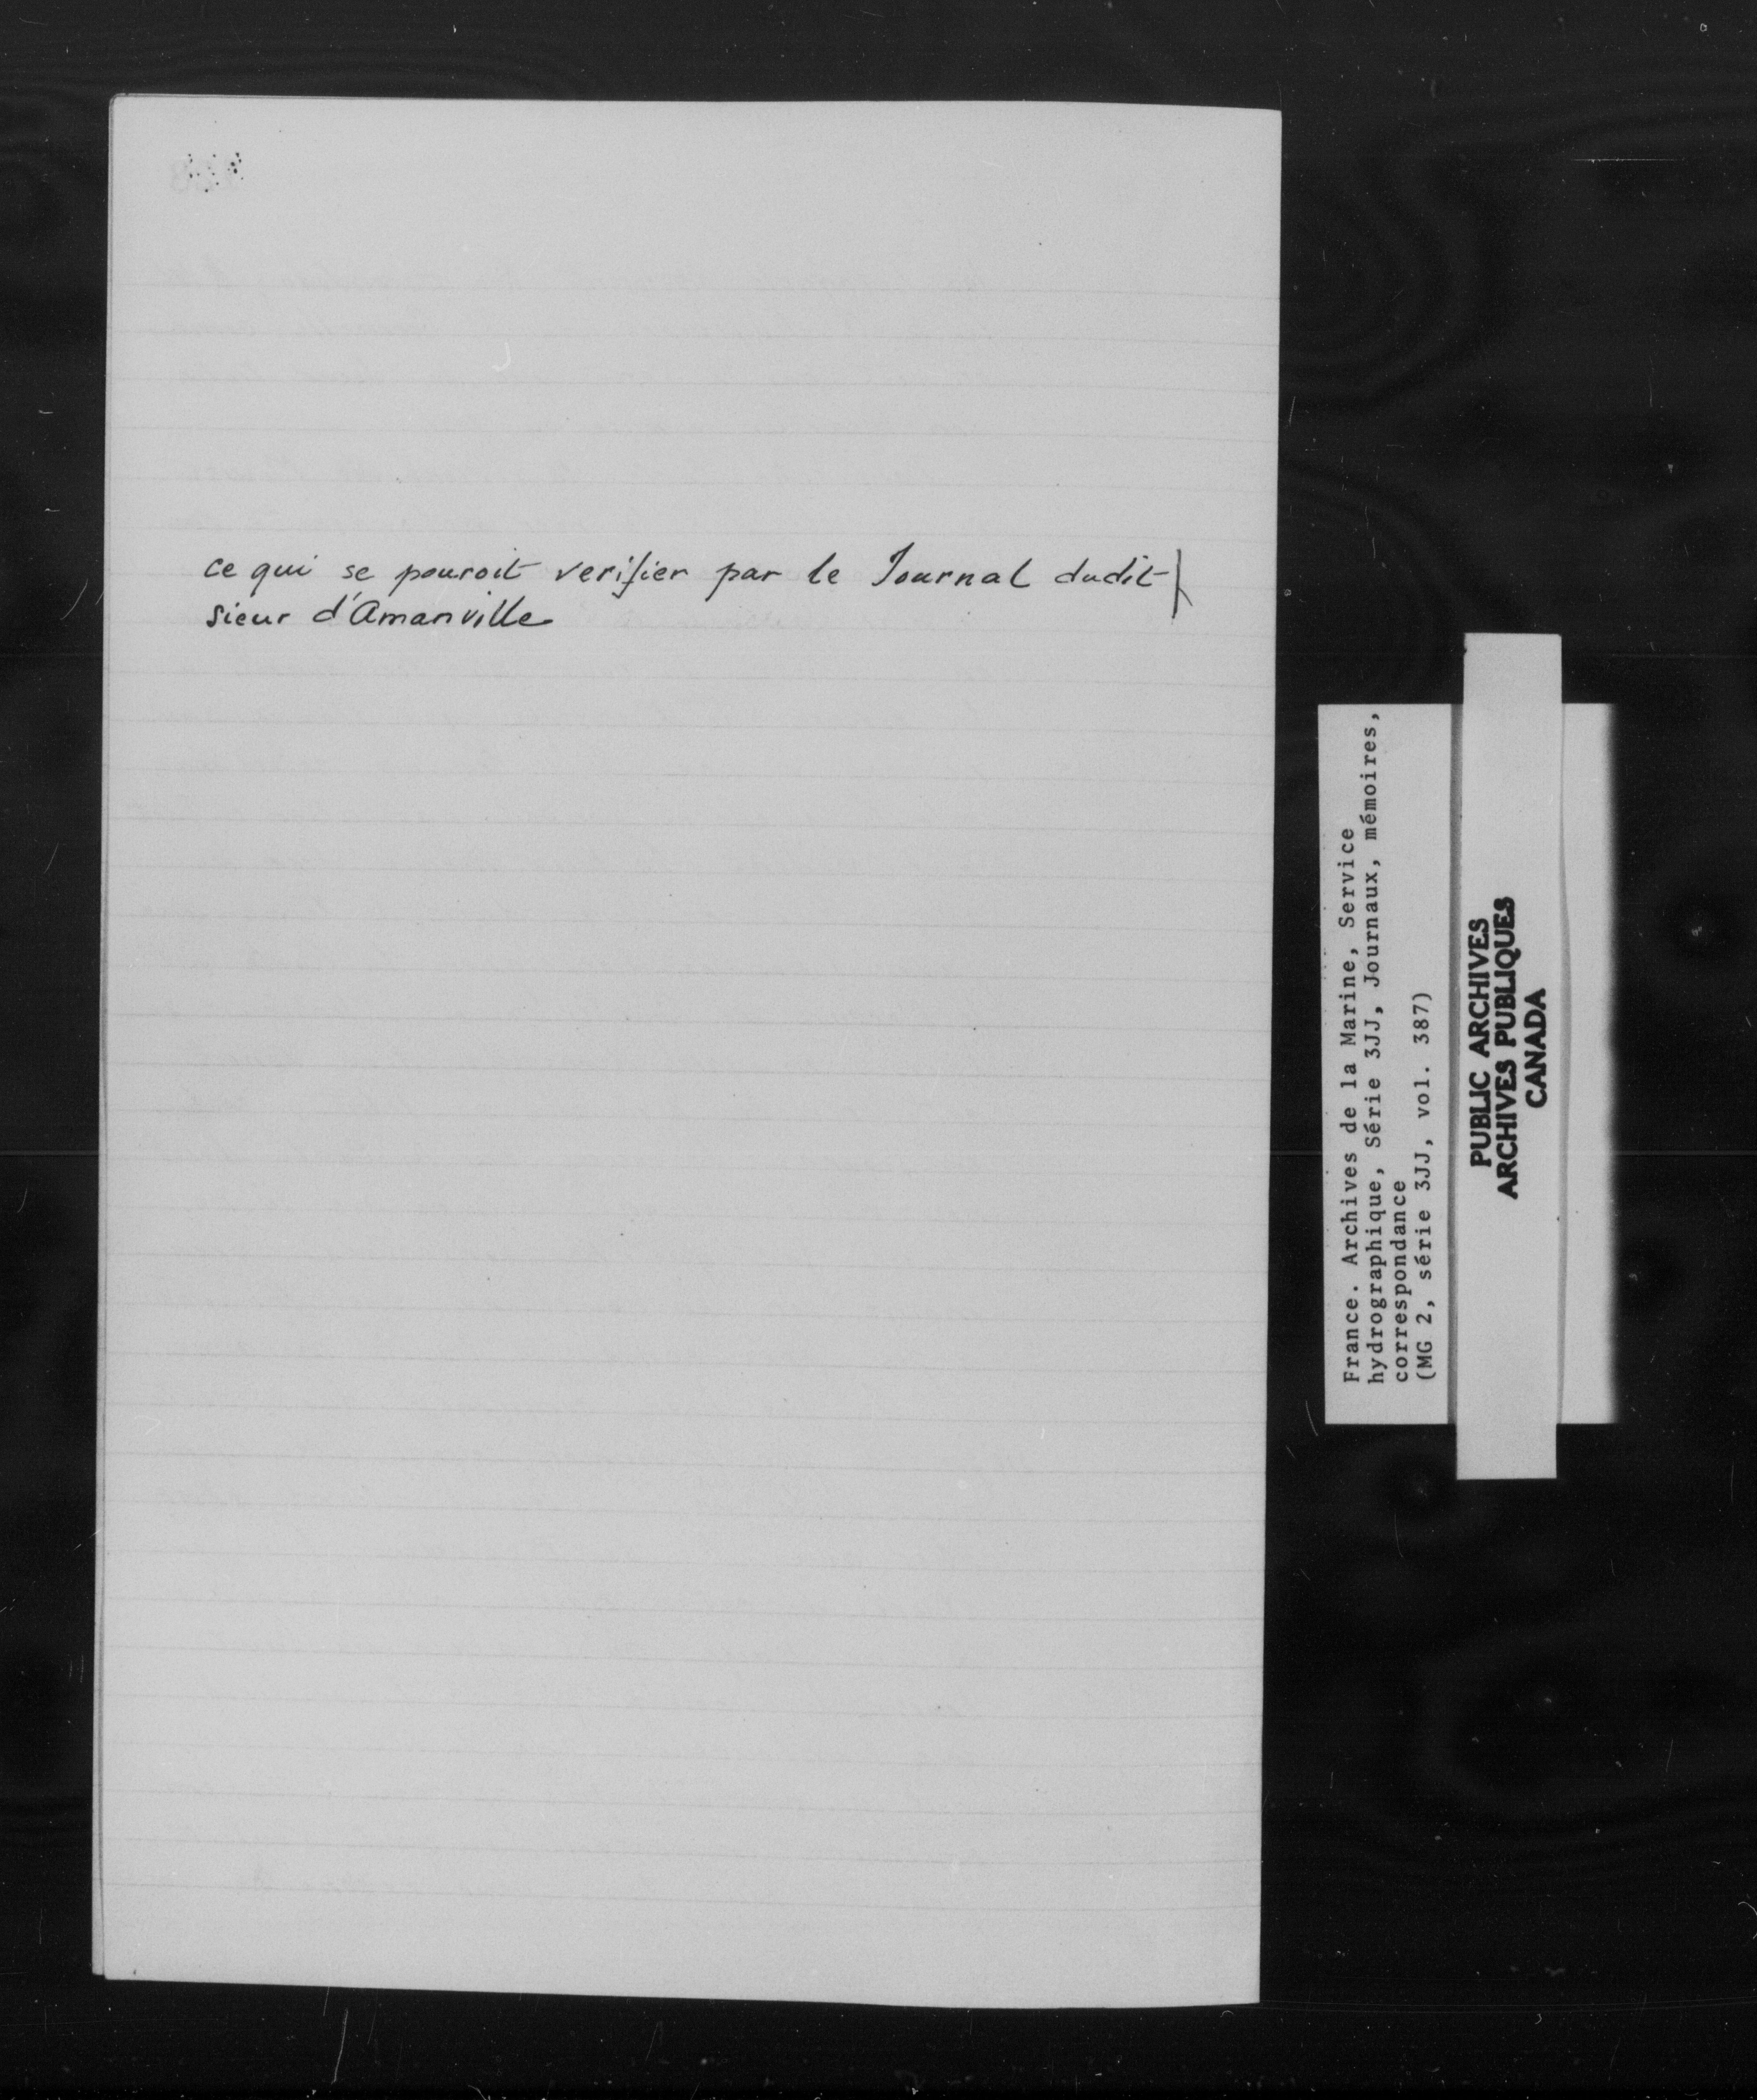 ce qui se pouroit verifier par le Journal dudit
sieur d'Amanville
France. Archives de la Marine, Service
hydrographique, Série 3JJ, Journaux, mémoires,
correspondance
(MG 2, série 3JJ, vol. 387)
PUBLIC ARCHIVES
ARCHIVES PUBLIQUES
CANADA